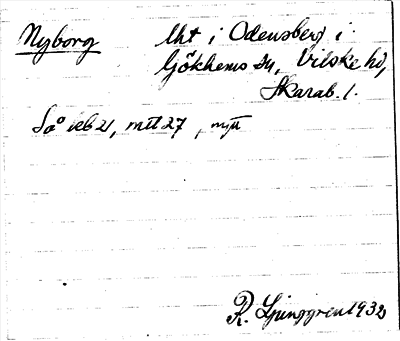 Nyborg
Uht i Odensberg i
Gökhems sn, Vilske hd,
Skarab. l.
Så ieb 21, mtl 27, nytt
R. Ljunggren 1932